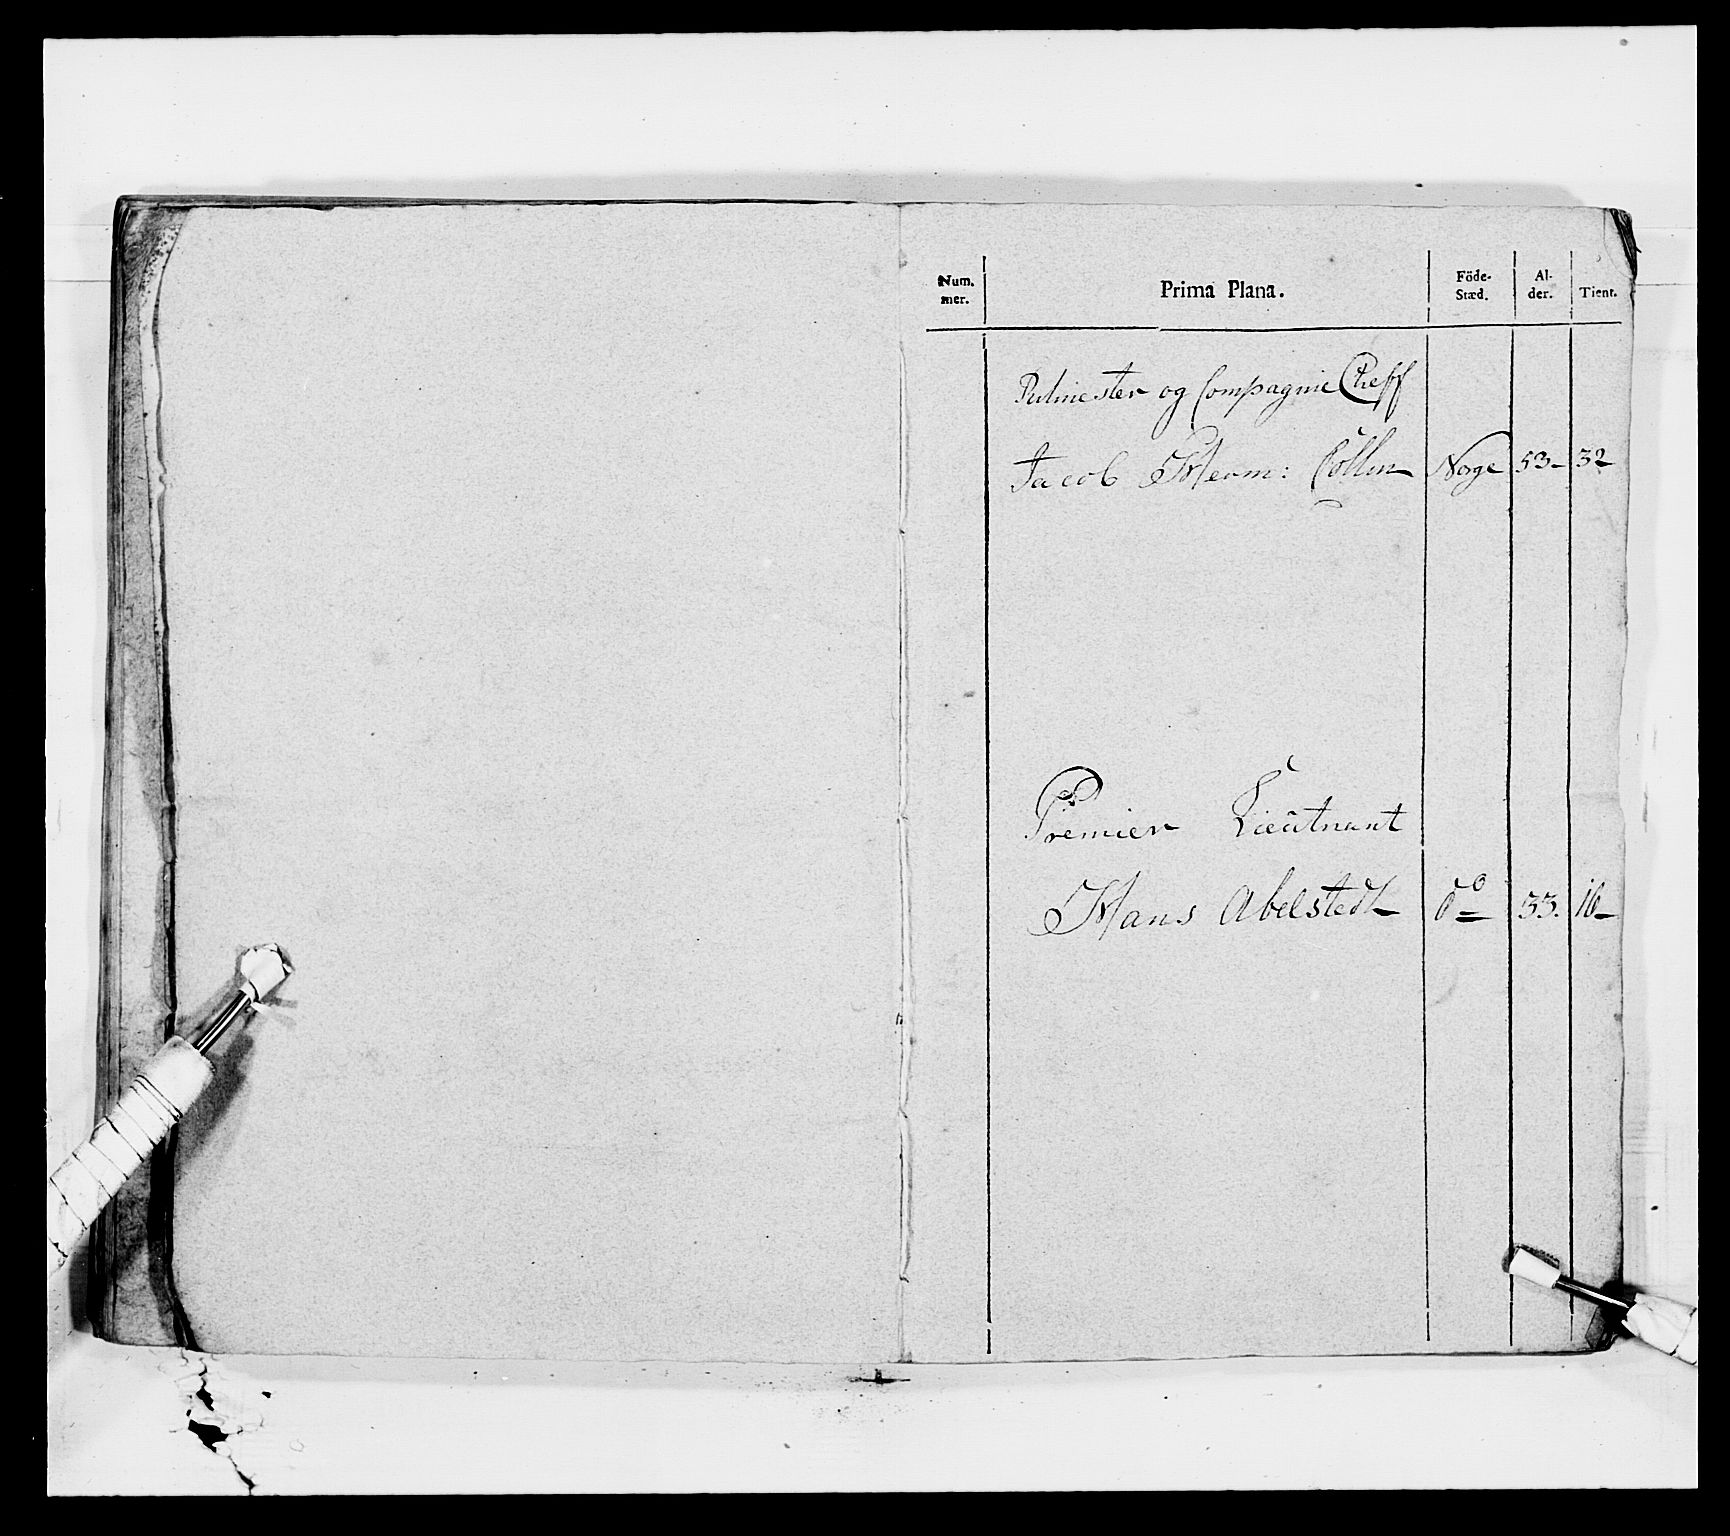 Num.
mer.
Prima Plana.
Föde-
Stæd.
Al-
der.
Tient.
Ritmester og Compagnie Cheff
Jacob Herm: Collin Norge 53- 32
Premier Lieutnant
Hans Abelstedt do 33. 16-